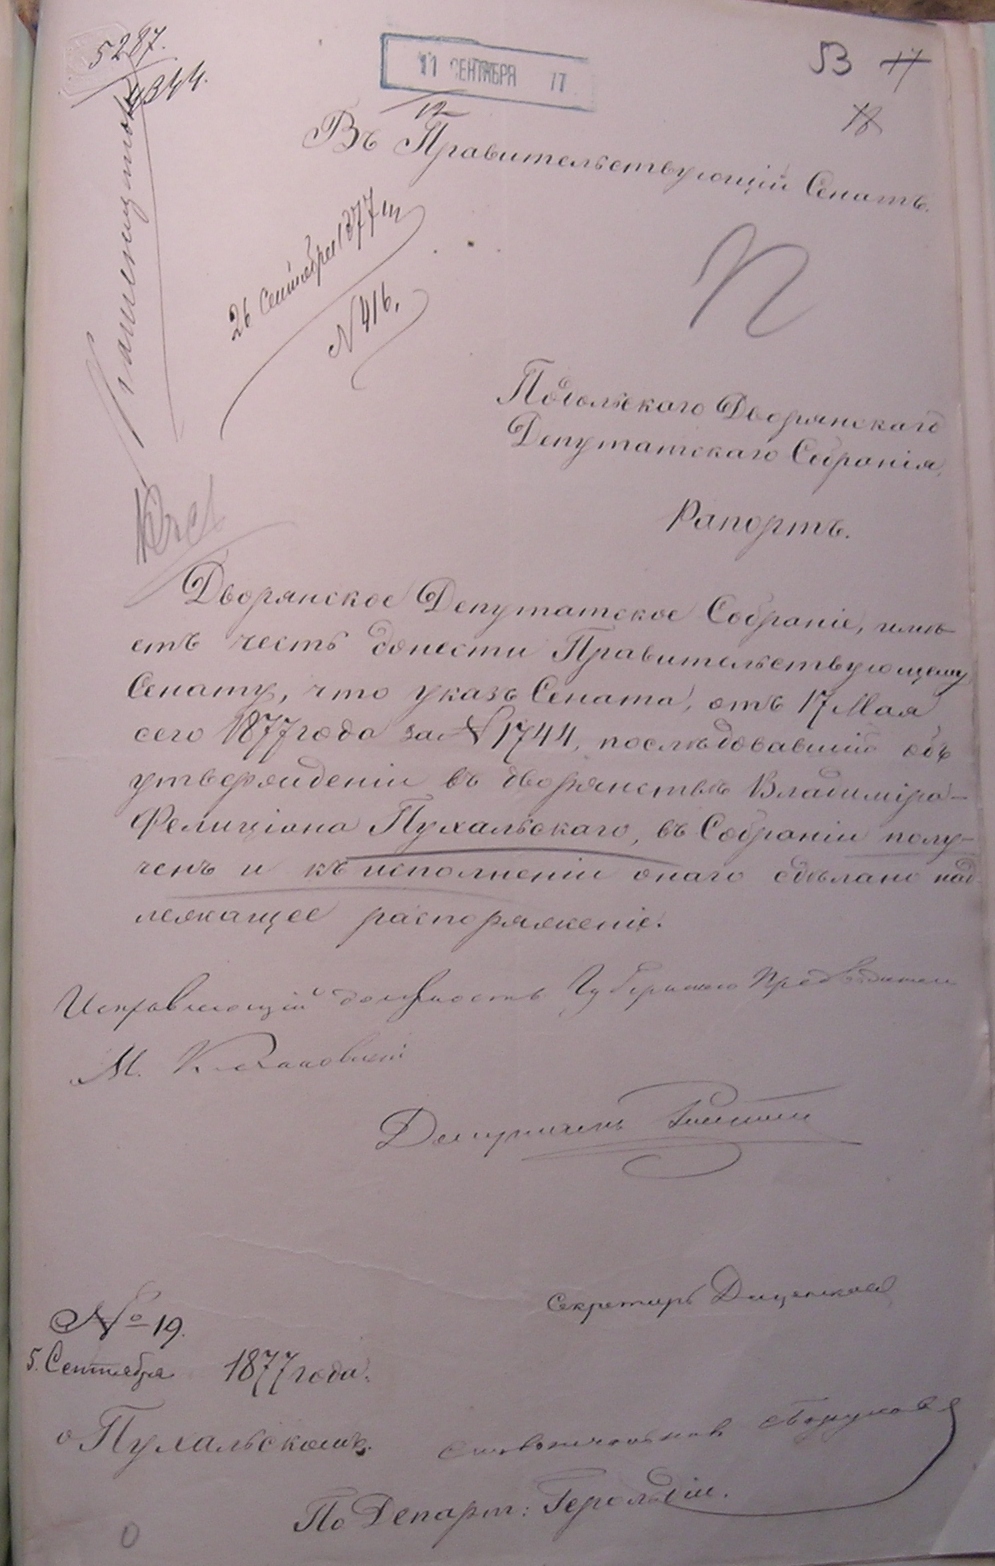 5287.
4344.
11 СЕНТЯБРЯ 77
53 17
18
Въ Правительствующій Сенатъ.
26 Сентября 1877 г.
№ 416.
Подольскаго Дворянскаго
Депутатскаго Собранія,
Рапортъ.
Дворянское Депутатское Собраніе, имѣ-
етъ честь донести Правительствующему
Сенату, что указъ Сената, отъ 17 Мая
сего 1877 года за № 1744, послѣдовавшій объ
утвержденіи въ дворянствѣ Владиміра-
Фелиціана Пухальскаго, въ Собраніи полу-
ченъ и къ исполненію онаго сдѣлано над-
лежащее распоряженіе.
Исправляющій должность Губернскаго Предводителя
М.
Депутатъ
Секретарь
№ 19.
5. Сентября 1877 года.
о Пухальскомъ.
Столоначальникъ
По Департ: Герольдіи.
0